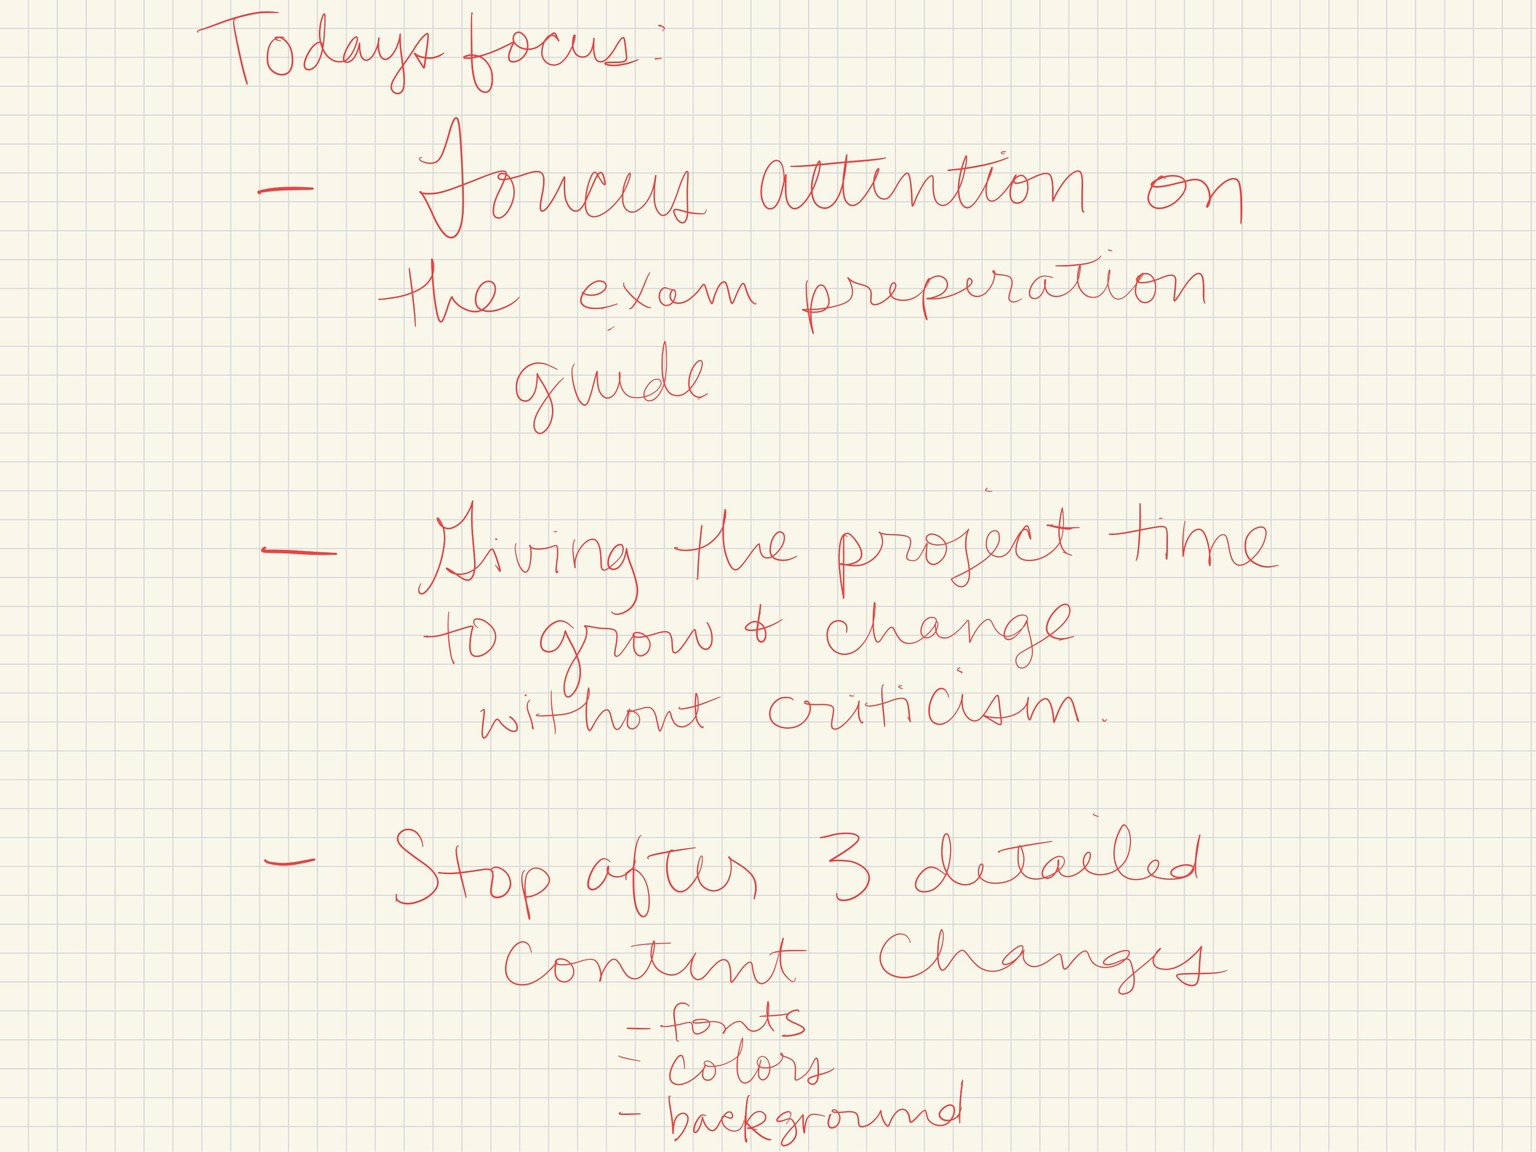 Todays focus:
- Foucus attention on
the exam preperation
guide
- Giving the project time
to grow & change
without criticism.
- Stop after 3 detailed
content changes
- fonts
- colors
- background